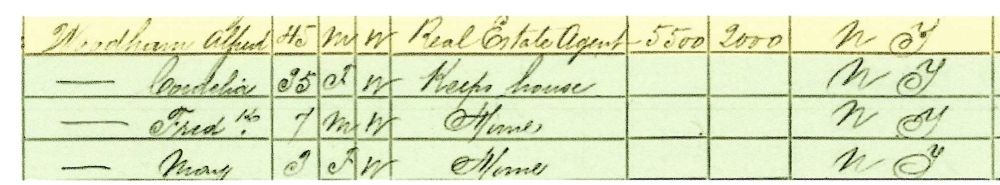 Woodham Alfred 45 M W Real Estate Agent 5500 2000 N Y
— Cordelia 35 F W Keeps house N Y
— Fred 7 M W Home N Y
— Mary 3 F W Home N Y